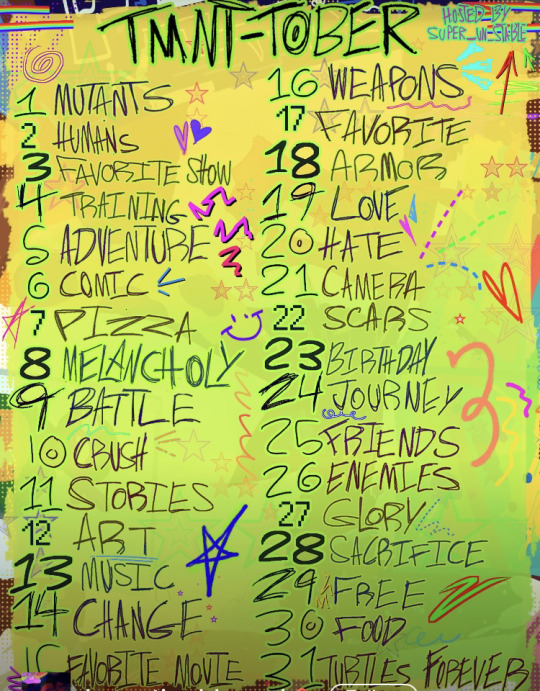 TMNT-TOBER
HOSTED BY
SUPER_UNSTABLE
1 MUTANTS
2 HUMANS
3 FAVORITE SHOW
4 TRAINING
5 ADVENTURE
6 COMIC
7 PIZZA
8 MELANCHOLY
9 BATTLE
10 CRUSH
11 STORIES
12 ART
13 MUSIC
14 CHANGE
15 FAVORITE MOVIE
16 WEAPONS
17 FAVORITE
18 ARMOR
19 LOVE
20 HATE
21 CAMERA
22 SCARS
23 BIRTHDAY
24 JOURNEY
25 FRIENDS
26 ENEMIES
27 GLORY
28 SACRIFICE
29 FREE
30 FOOD
31 TURTLES FOREVER